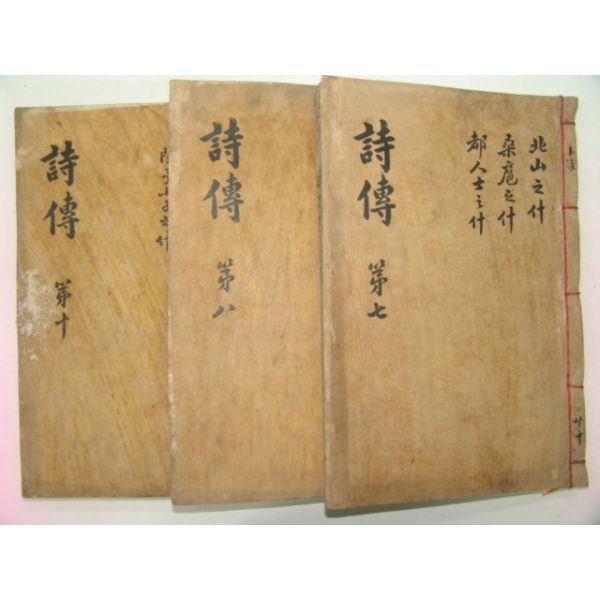 詩傳 第七
北山之什
桑扈之什
都人士之什
詩傳 第八
詩傳 第十